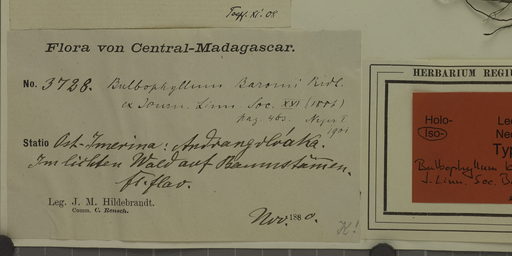 Flora von Central-Madagascar.
No. 3728. Bulbophyllum Baroni Ridl.
ex Journ. Linn. Soc. XXI (1886)
pag. 463.
Statio Ost-Imerina: Andrangolóaka.
Im lichten Wald auf Baumstämmen.
fl. flav.
Leg. J. M. Hildebrandt.
Comm. C. Rensch.
Nov. 1880.
K!
HERBARIUM REGIU
Holo-
Iso-
Lec
Ne
Typ
Bulbophyllum b
J. Linn. Soc. B